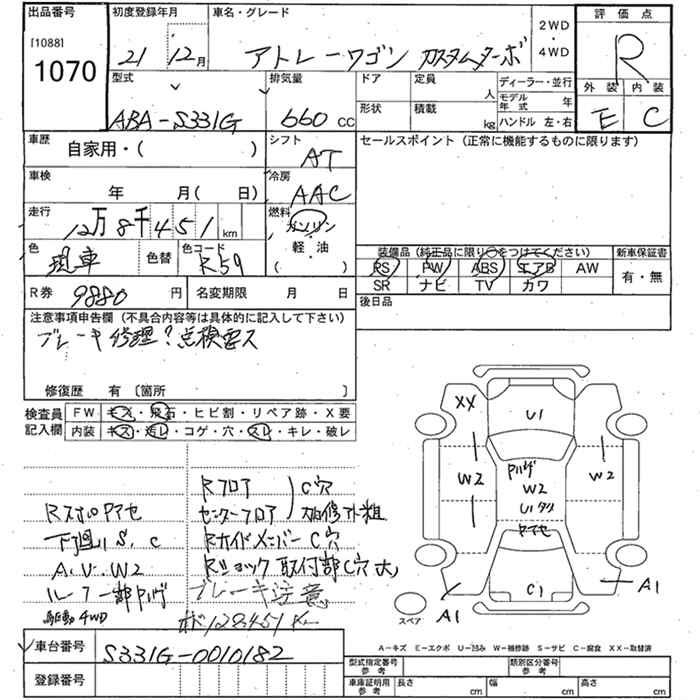 出品番号 初度登録年月 車名・グレード 2WD・4WD 評価点
[1088]
1070
21 12月 アトレーワゴン カスタムターボ R
型式 排気量 ドア 定員 人 ディーラー・並行 外装 内装
モデル年式 年
ABA-S331G 660 CC 形状 積載 kg ハンドル 左・右 E C
車歴 自家用・( ) シフト AT セールスポイント(正常に機能するものに限ります)
車検 年 月( 日) 冷房 AAC
走行 12万8千451km 燃料 ガソリン
軽・油
( )
色 現車 色替 色コード R59 装備品(純正品に限り○をつけてください) 新車保証書
PS PW ABS エアB AW 有・無
SR ナビ TV カワ
R券 9880円 名変期限 月 日 後日品
注意事項申告欄(不具合内容等は具体的に記入して下さい)
ブレーキ修理?点検要ス
修復歴 有 〔箇所 〕
検査員 FW キズ・飛石・ヒビ割・リペア跡・X要
記入欄 内装 キズ・汚レ・コゲ・穴・スレ・キレ・破レ
XX U1
W2 Pハゲ W2 W2
U1
ヤケセ
C1
A1 A1
スペア
Rフロア C穴
センターフロア 加修アト粗
下廻り S, C RサイドメンバーC穴
A.U.W2 Rショック取付部C穴大
ルーフ一部Pハゲ ブレーキ注意
駆動4WD 128451K
車台番号 S331G-0010182
登録番号
A-キズ E-エクボ U-凹み W-補修跡 S-サビ C-腐食 XX-取替済
型式指定番号 参考 類別区分番号 参考
車庫証明用 参考 長さ cm 幅 cm 高さ cm